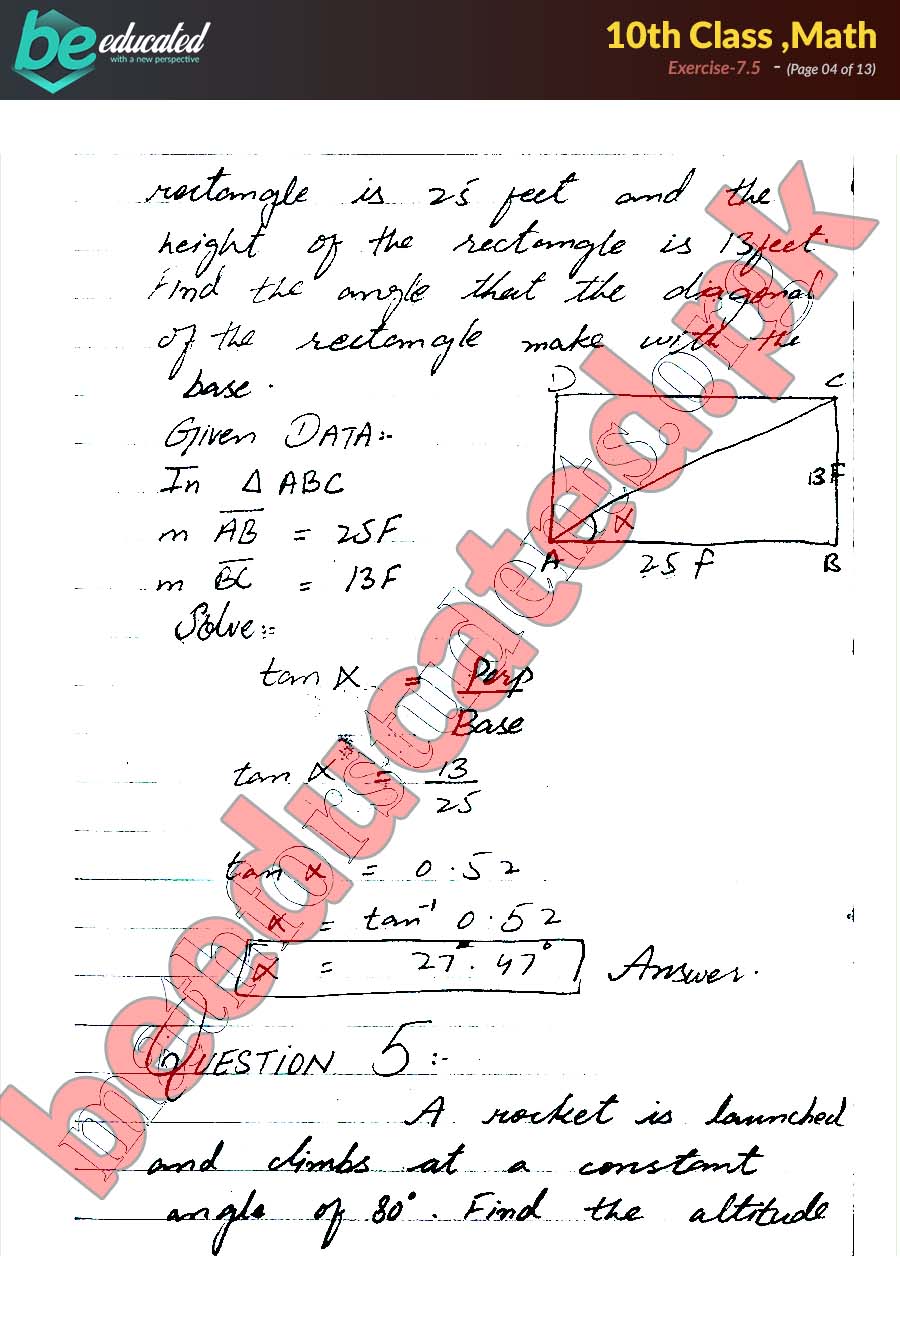 be educated
with a new perspective
10th Class ,Math
Exercise-7.5 - (Page 04 of 13)
rectangle is 25 feet and the
height of the rectangle is 13 feet.
Find the angle that the diagonal
of the rectangle make with the
base.
D C
GIVEN DATA:-
In Δ ABC
13F
m AB = 25F
α
A 25 f B
m BC = 13F
Solve:-
tan α = Perp
Base
tan α = 13
25
tan α = 0.52
α = tan⁻¹ 0.52
α = 27.47° Answer.
QUESTION 5:-
A rocket is launched
and climbs at a constant
angle of 80°. Find the altitude
beeducated.pk